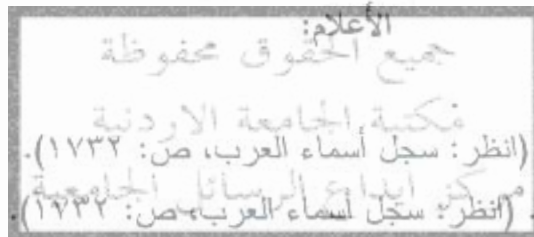 الأعلام:
جميع الحقوق محفوظة
مكتبة الجامعة الاردنية
(انظر: سجل أسماء العرب، ص: ١٧٣٢).
مركز ايداع الرسائل الجامعية
. (انظر: سجل أسماء العرب، ص: ١٧٣٢).